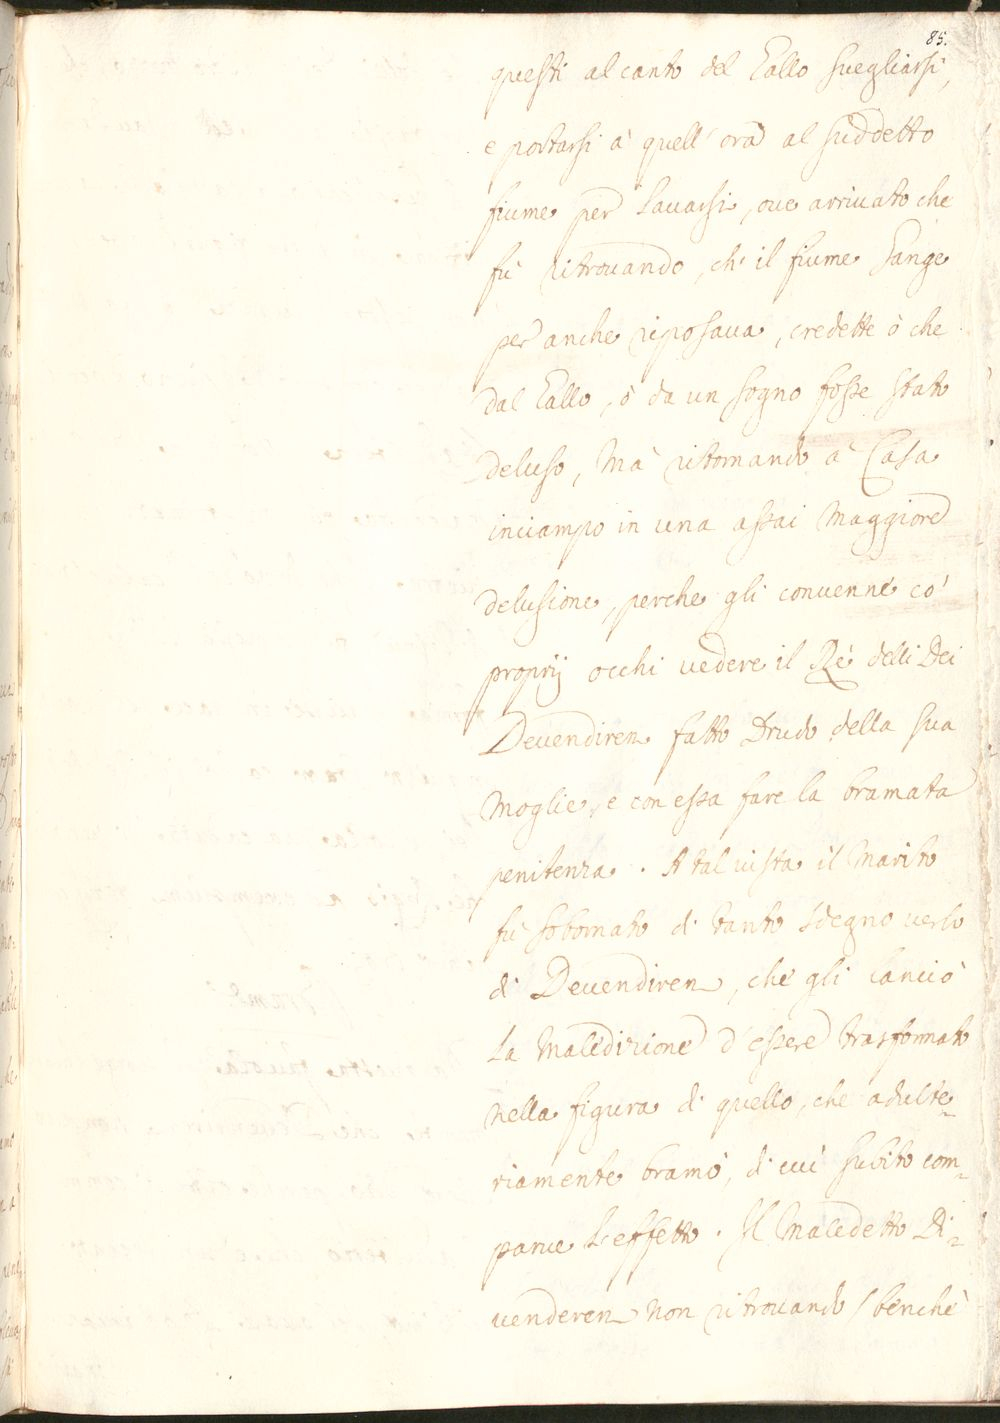 85.
questi al canto del Gallo suegliarsi,
e portarsi à quell'ora al suddetto
fiume per lauarsi, oue arriuato che
fù ritrouando, ch'il fiume Gange
per anche riposaua, credette ò che
dal Gallo, ò da un sogno fosse stato
deluso, mà ritornando à Casa
inciampo in una assai maggiore
delusione, perche gli conuenne co'
proprij occhi uedere il Rè delli Dei
Deuendiren fatto Drudo della sua
Moglie, e con essa fare la bramata
penitenza. A tal uista il Marito
fù sobornato di tanto sdegno uerso
di Deuendiren, che gli lanciò
la Maledizione d'essere trasformato
nella figura di quello, che adulte=
riamente bramò, di cui subito com=
parue l'effetto. Il Maledetto Di=
uenderen non ritrouando / benchè